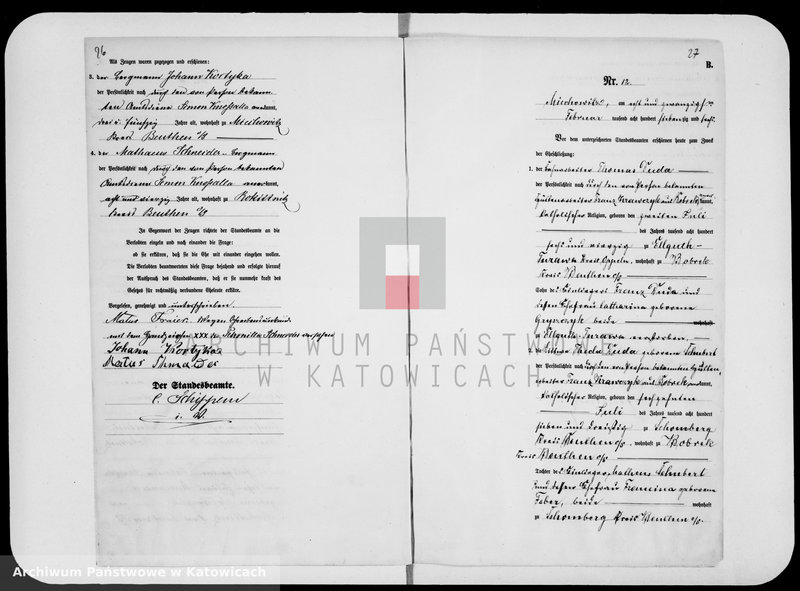 26
Als Zeugen waren zugezogen und erschienen:
3. der Bergmann Johann Kortyka
der Persönlichkeit nach durch den von Person bekann-
ten Amtsdiener Simon Knossalla anerkannt,
drei u. fünfzig Jahre alt, wohnhaft zu Miechowitz
Kreis Beuthen O/S
4. der Mathaeus Schneider Bergmann
der Persönlichkeit nach durch den von Person bekannten
Amtsdiener Simon Knossalla anerkannt,
acht und vierzig Jahre alt, wohnhaft zu Rokittnitz
Kreis Beuthen O/S
In Gegenwart der Zeugen richtete der Standesbeamte an die
Verlobten einzeln und nach einander die Frage:
ob sie erklären, daß sie die Ehe mit einander eingehen wollen.
Die Verlobten beantworteten diese Frage bejahend und erfolgte hierauf
der Ausspruch des Standesbeamten, daß er sie nunmehr kraft des
Gesetzes für rechtmäßig verbundene Eheleute erkläre.
Vorgelesen, genehmigt und unterschrieben
mit dem Handzeichen xxx der
Johann Kortyka
Matus
Der Standesbeamte.
i. V.
27
B.
Nr. 12.
Miechowitz, am acht und zwanzigsten
Februar tausend acht hundert siebenzig und sechs.
Vor dem unterzeichneten Standesbeamten erschienen heute zum Zweck
der Eheschließung:
1. der Thomas Duda
der Persönlichkeit nach durch den von Person bekannten
Hüttenarbeiter Franz Krawczyk aus Bobrek anerkannt,
katholischer Religion, geboren den zweiten Juli
des Jahres tausend acht hundert
sechs und vierzig zu Ellguth-
Turawa Kreis Oppeln, wohnhaft zu Bobrek
Kreis Beuthen O/S
Sohn des Einliegers Franz Duda und
dessen Ehefrau Catharina geborene
beide wohnhaft
zu Ellguth Turawa verstorben.
2. die Duda geborene Schubert
der Persönlichkeit nach durch den von Person bekannten Hütten-
arbeiter Franz Krawczyk aus Bobrek anerkannt,
katholischer Religion, geboren den sechzehnten
Juli des Jahres tausend acht hundert
sieben und dreißig zu Schomberg
Kreis Beuthen O/S, wohnhaft zu Bobrek
Kreis Beuthen O/S
Tochter des Einliegers Matheus Schubert
und dessen Ehefrau Francina geborene
Faber, beide wohnhaft
zu Schomberg Kreis Beuthen O/S.
ARCHIWUM PAŃSTWOWE
W KATOWICACH
Archiwum Państwowe w Katowicach